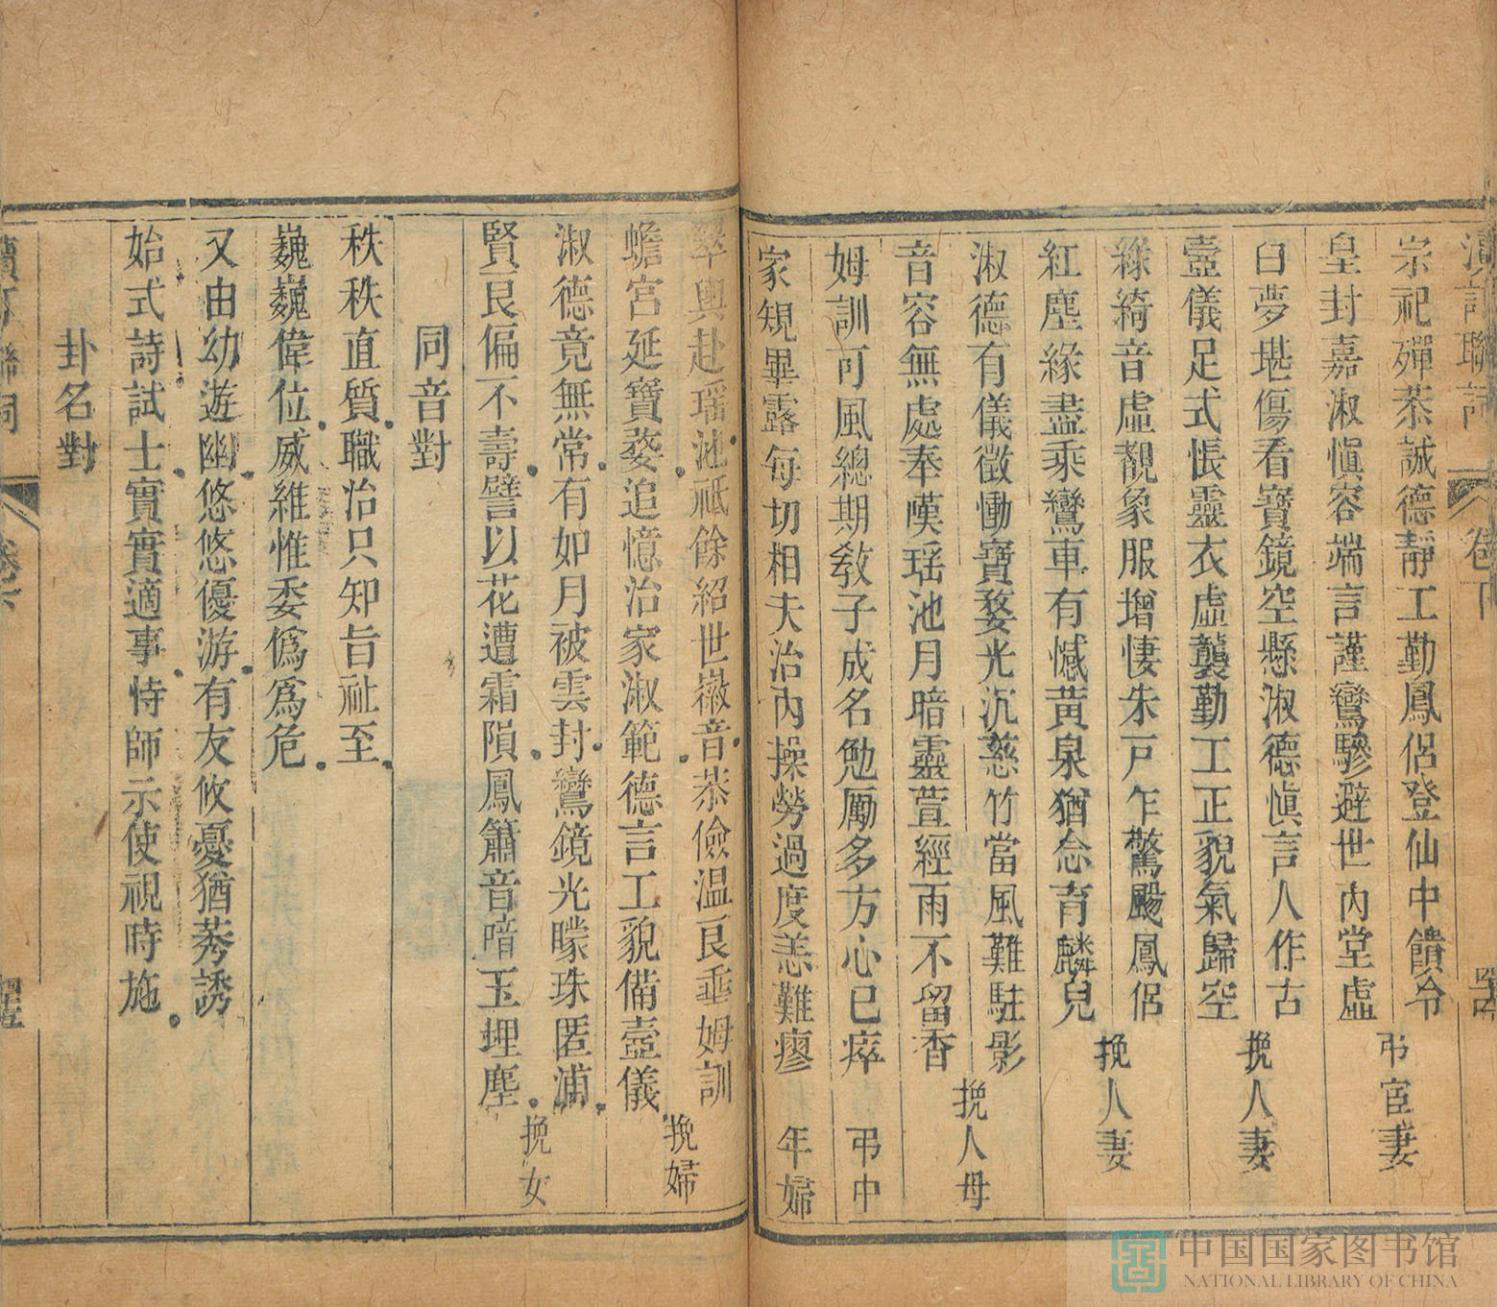 聯
卷下
宗祀殫恭誠德靜工勤鳳侶登仙中饋冷
皇封嘉淑慎容端言謹鸞驂避世內堂虛
弔宦妻
臼夢堪傷看寶鏡空懸淑德慎言人作古
壼儀足式悵靈衣虛襲勤工正貌氣歸空
挽人妻
綠綺音虛靚象服增悽朱戶乍驚颺鳳侶
紅塵緣盡乘鸞車有憾黃泉猶念育麟兒
挽人妻
淑德有儀徵慟寶婺光沉慈竹當風難駐影
音容無處奉嘆瑶池月暗靈萱經雨不留香
挽人母
姆訓可風總期教子成名勉勵多方心已瘁
家規畢露每切相夫治內操勞過度恙難瘳
弔中年婦
翠輿赴瑶池祗餘紹世徽音恭儉温良垂姆訓
蟾宮延寶婺追憶治家淑範德言工貌備壼儀
挽婦
淑德竟無常有如月被雲封鸞鏡光曚珠匿浦
賢良偏不壽譬以花遭霜隕鳳簫音喑玉埋塵
挽女
同音對
秩秩直質職治只知旨祉至
巍巍偉位威維惟委僞爲危
又由幼遊幽悠悠優游有友攸憂猶莠誘
始式詩試士實實適事恃師示使視時施
卦名對
中国国家图书馆
NATIONAL LIBRARY OF CHINA